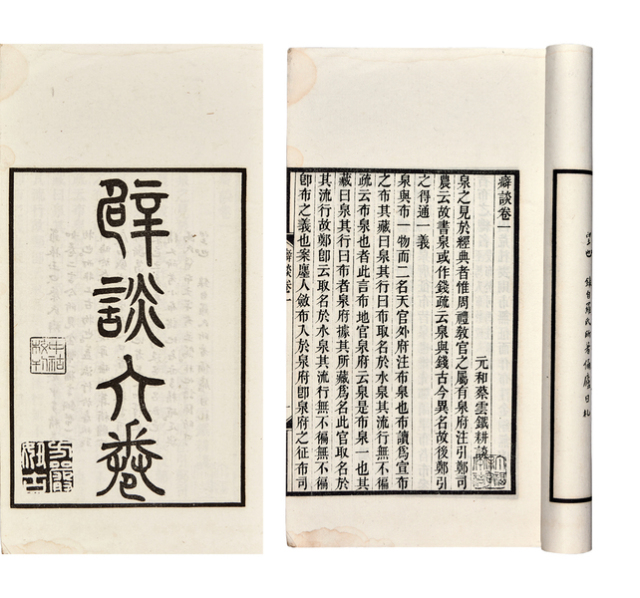 癖談六卷
癖談卷一
元和蔡雲鐵耕譔
泉之見於經典者惟周禮敎官之屬有泉府注引鄭司
農云故書泉或作錢疏云泉與錢古今異名故後鄭引
之得通一義
泉與布一物而二名天官外府注布泉也布讀爲宣布
之布其藏曰泉其行曰布取名於水泉其流行無不徧
疏云布泉也者此言布地官泉府云泉是布泉一也其
藏曰泉其行曰布者泉府據其所藏爲名此官取名於
其流行故鄭卽云取名於水泉其流行無不徧無不徧
卽布之義也案廛人斂布入於泉府卽泉府之征布司
癖談卷一